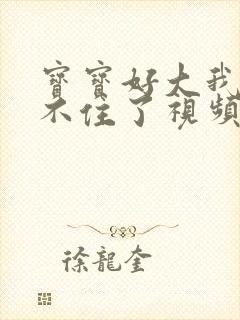 寶寶好大我
不住了視頻
徐龍奎